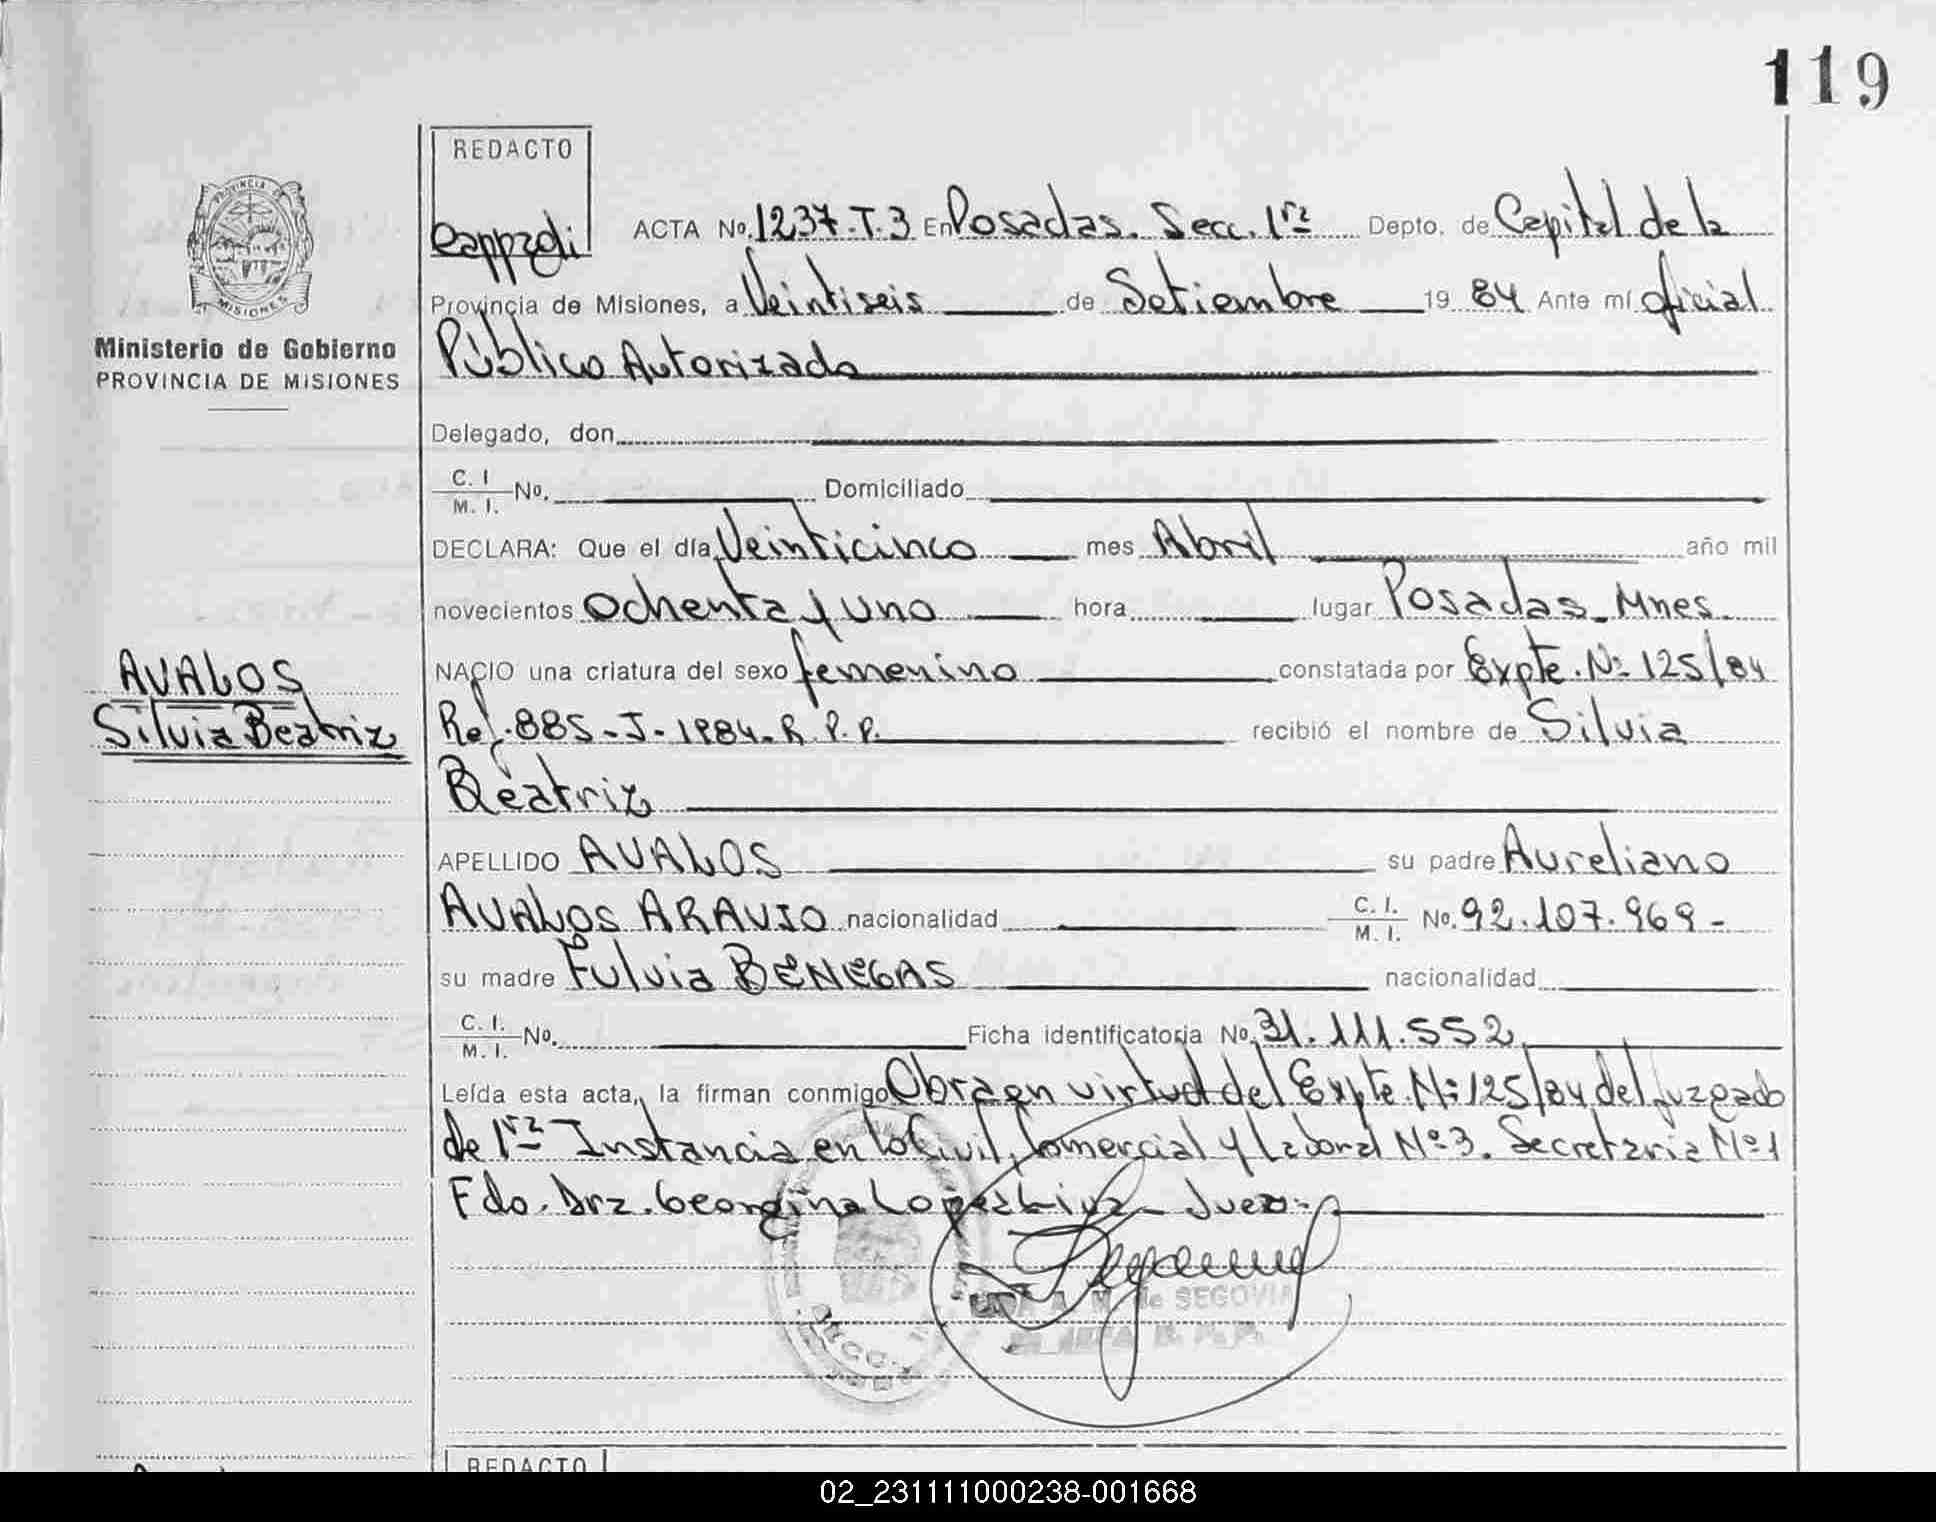 119
REDACTO
ACTA No. 1237.T.3 En Posadas. Secc. 1ra Depto. de Capital de la
PROVINCIA DE
MISIONES
Provincia de Misiones, a Veintiseis de Setiembre 19 84 Ante mí oficial
Ministerio de Gobierno
PROVINCIA DE MISIONES
Público Autorizado
Delegado, don
C. I. No. Domiciliado
M. I.
DECLARA: Que el día Veinticinco mes Abril año mil
novecientos ochenta y uno hora lugar Posadas_Mnes
AVALOS
Silvia Beatriz
NACIO una criatura del sexo femenino constatada por Expte. Nº 125/84
Ref. 885-J-1984-R.P.P. recibió el nombre de Silvia
Beatriz
APELLIDO AVALOS su padre Aureliano
AVALOS ARAUJO nacionalidad C. I. No. 92.107.969-
M. I.
su madre Fulvia BENEGAS nacionalidad
C. I. No. Ficha identificatoria No. 31.111.552
M. I.
Leída esta acta, la firman conmigo Obra en virtud del Expte. Nº 125/84 del Juzgado
de 1ra Instancia en lo Civil, Comercial y Laboral Nº 3. Secretaria Nº 1
Fdo. Dra. Georgina Juez.
de SEGOVIA
REDACTO
02_231111000238-001668